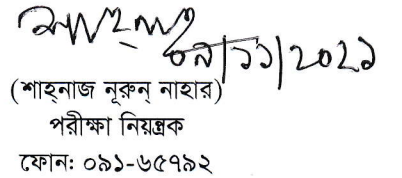 ০৯/১১/২০২১
(শাহ্‌নাজ নূরুন্‌ নাহার)
পরীক্ষা নিয়ন্ত্রক
ফোন: ০৯১-৬৫৭৯২